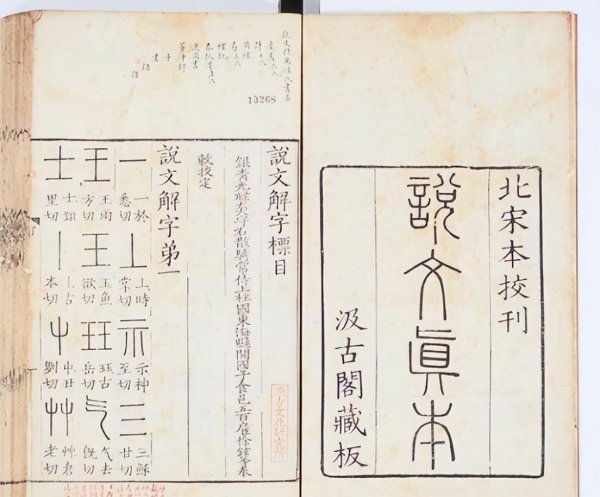 北宋本挍刊
說文眞本
汲古閣藏板
13268
說文解字標目
銀青光祿大夫守右散騎常侍上柱國東海縣開國子食邑五百戶徐鉉等奉
敕挍定
說文解字第一
一 一於悉切 丄 丄時掌切 示 示神至切 三 三穌甘切
王 王雨方切 王 玉魚欲切 玨 珏古岳切 气 气去旣切
士 士鉏里切 丨 丨古本切 屮 屮丑列切 艸 艸倉老切